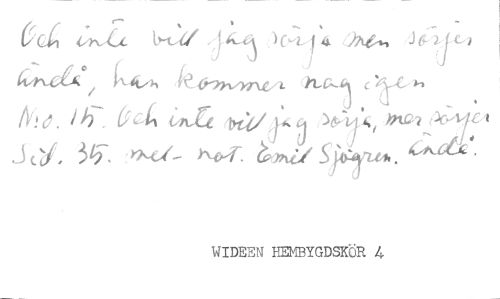 Och inte vill jag sörja men sörjer
ändå, han kommer nog igen
No. 15. Och inte vill jag sörja, men sörjer
Sid. 35. mel- not. Emil Sjögren. ändå.
WIDEEN HEMBYGDSKÖR 4